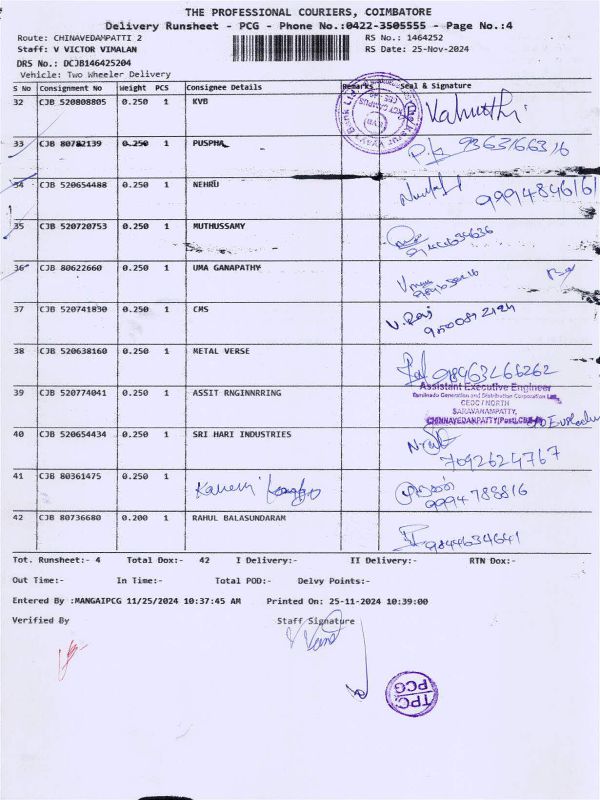 THE PROFESSIONAL COURIERS, COIMBATORE
Delivery Runsheet - PCG - Phone No.:0422-3505555 - Page No.:4
Route: CHINAVEDAMPATTI 2 RS No.: 1464252
Staff: V VICTOR VIMALAN RS Date: 25-Nov-2024
DRS No.: DCJB146425204
Vehicle: Two Wheeler Delivery
S No Consignment No Weight PCS Consignee Details Remarks Seal & Signature
32 CJB 520808805 0.250 1 KVB
33 CJB 80782139 0.250 1 PUSPHA
34 CJB 520654488 0.250 1 NEHRU 9994846161
35 CJB 520720753 0.250 1 MUTHUSSAMY
36 CJB 80622660 0.250 1 UMA GANAPATHY
37 CJB 520741830 0.250 1 CMS
38 CJB 520638160 0.250 1 METAL VERSE
39 CJB 520774041 0.250 1 ASSIT RNGINNRRING
Assistant Executive Engineer
Tamilnadu Generation and Distribution Corporation Ltd,
CEDC / NORTH
SARAVANAMPATTY,
40 CJB 520654434 0.250 1 SRI HARI INDUSTRIES 7092624767
41 CJB 80361475 0.250 1 9994788816
42 CJB 80736680 0.200 1 RAHUL BALASUNDARAM 9844634641
Tot. Runsheet:- 4 Total Dox:- 42 I Delivery:- II Delivery:- RTN Dox:-
Out Time:- In Time:- Total POD:- Delvy Points:-
Entered By :MANGAIPCG 11/25/2024 10:37:45 AM Printed On: 25-11-2024 10:39:00
Verified By Staff Signature
TPC
PCG